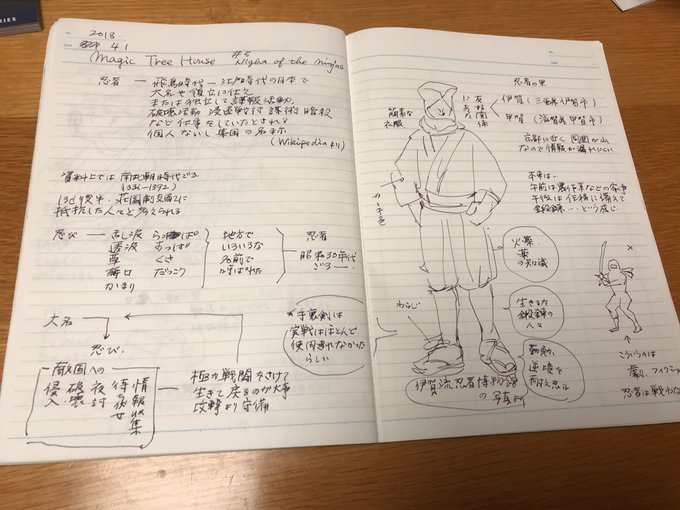 RIES
2018
4.1
Magic Tree House #5
Night of the Ninjas
忍者 ― 飛鳥時代―江戸時代の日本で
大名や領主に仕え
または独立して諜報活動、
破壊活動、浸透戦術、謀術、暗殺
など仕事をしていたとされる
個人ないし集団の名称
(Wikipediaより)
資料上では 南北朝時代ごろ
(1336-1392)
13c後半、荘園制支配に
抵抗した人々と考えられる
忍び ― 乱波 らっぱ
透波 すっぱ
草 くさ
だっこう
かまり
地方で
いろいろな
名前で
呼ばれた
忍者
昭和30年代
ごろ―
大名
忍び
*手裏剣は
実戦ではほとんど
使用されなかった
らしい
敵国への
侵入
破壊
夜討
待ち伏せ
情報収集
極力戦闘をさけて
生きて戻るのが大事
攻撃より守備
忍者の里
友好関係
にあった
伊賀 (三重県伊賀市)
甲賀 (滋賀県甲賀市)
京都に近く 周囲が山
なので情報が漏れにくい
簡素な
衣服
本来は…
午前は農作業などの家事
午後は任務に備えて
鍛錬…という感じ
火薬
薬
の知識
生きる
鍛錬の
人々
逆境を
耐え忍ぶ
わらじ
伊賀流忍者博物館
の写真より
×
こういうのは
忍者は戦わな